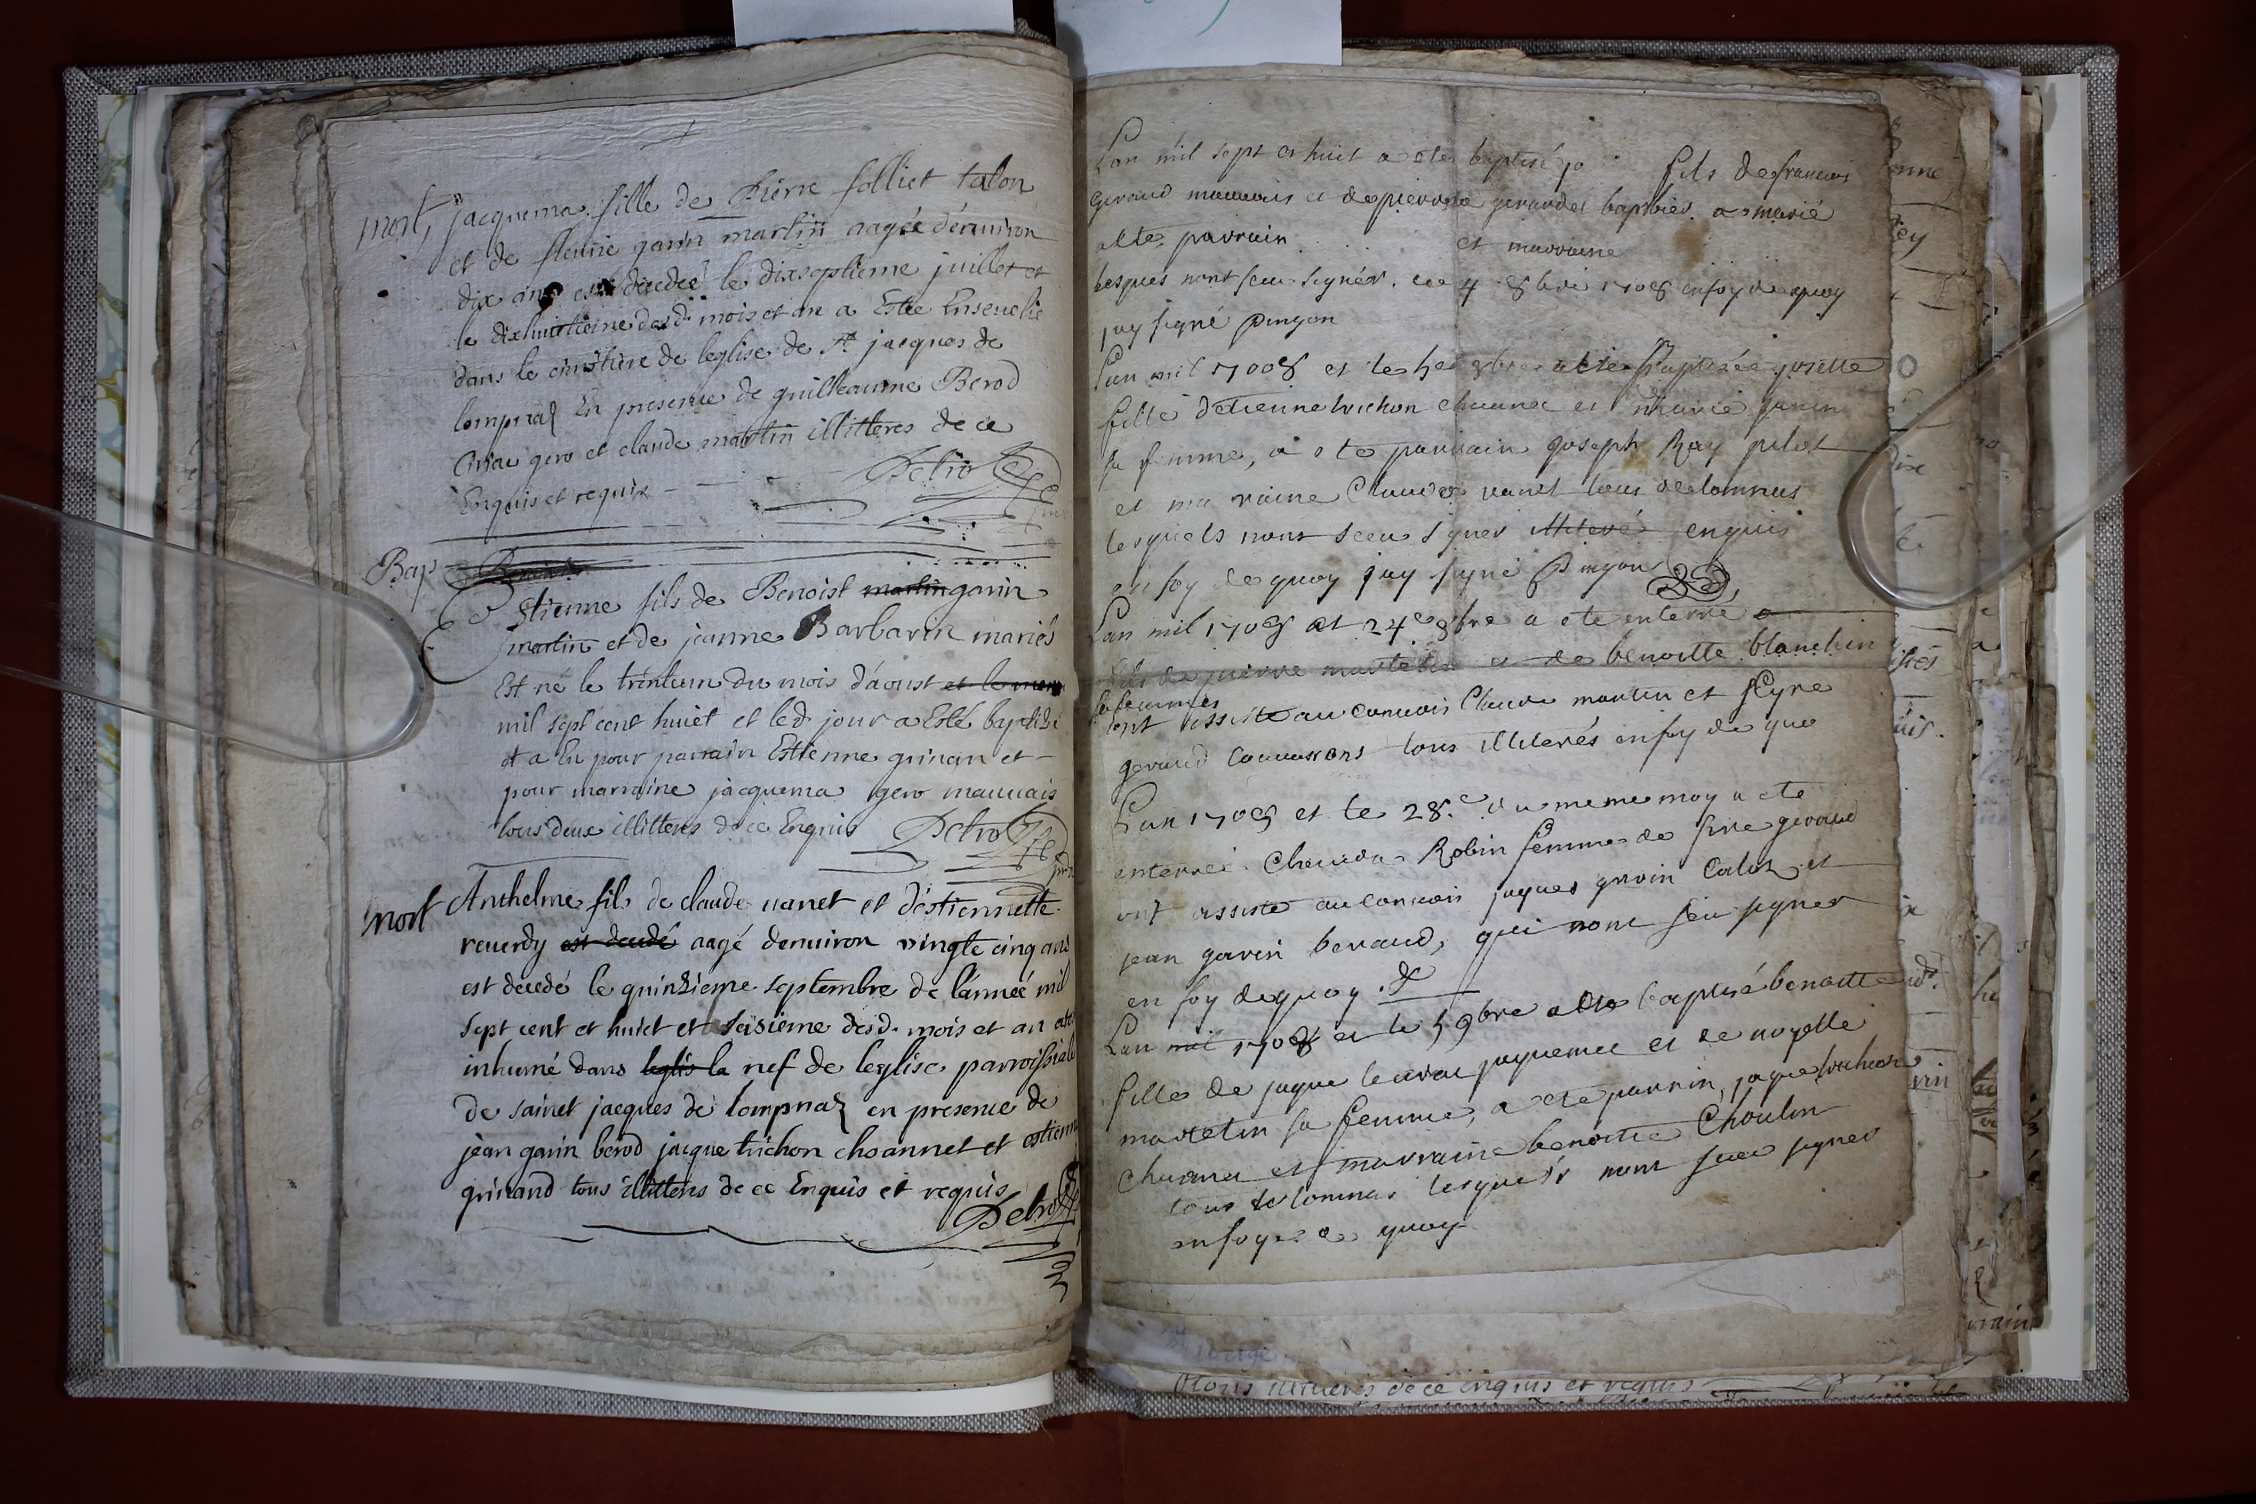 mort, jacquema fille de Pierre folliet talon
et de fleurie garin martin aagée d'énuiron
dix ans est décédée le dixseptieme juillet et
le dixhuictieme desd. mois et an a Esté Enseuelie
dans le cimitiere de leglise de st jacques de
lompnaz En presence de guilleaume Berod
gero et claude martin illitteres de ce
Enquis et requis Detro
Bap
Estienne fils de Benoist martin garin
martin et de jeanne Barbarin mariés
Est né le trentun du mois d'aoust et le
mil sept cent huict et led. jour a Esté baptisé
et a Eu pour parrain Estienne grinan et
pour marraine jacquema gero mauuais
tous deux illitteres de ce Enquis Detro
mort Anthelme fils de claude uanet et d'éstiennette
reuerdy est decedé aagé denuiron vingte cinq ans
est decedé le quinzieme septembre de l'année mil
sept cent et huict et seisiéme desd. mois et an a esté
inhumé dans leglis la nef de leglise parroissiale
de sainct jacques de lompnaz en presence de
jean garin berod jacque trichon choannet et estienne
grinand tous illitteres de ce Enquis et requis
Detro
Lan mil sept et huit a ete baptisé jo fils de francois
geraud mauuais et de pierrone barbier a
ette parrain et marraine
lesques nont sceu signer. ce 4 8bre 1708 en foy de quoy
jay signé pingon
Lan mil 1708 et le 8bre a ete baptisée
fille detienne trichon chuana et marie
sa femme, a ete parrain joseph Ray pilot
et ma raine Claude uanet tous de lomnas
lesquels nont sceu signer illiteré enquis
en foy de quoy jay signé Pingon
Lan mil 1708 et 24e 8bre a ete enterré
fils de pierre martelin et de benoitte blanchin
sa femme
ont assisté au conuois Claude martin et
geraud tous illiterés en foy de quo
Lan 1708 et le 28.e du meme moy a ete
enterré Clauda Robin femme de geraud
ont assisté au conuois jaques garin Calot et
jean garin beraud, qui nont seu signer
en foy de quoy
Lan mil 1708 et le 9bre a ete baptisé benoitte
fille de jaque jaquemet et de
martelin sa femme, a ete parrin, jaque trichon
chuana et marraine benoitte Choulin
tous de lomnas lesquels nont sceu signer
en foy de quoy
tous illiteres de ce enquis et requis